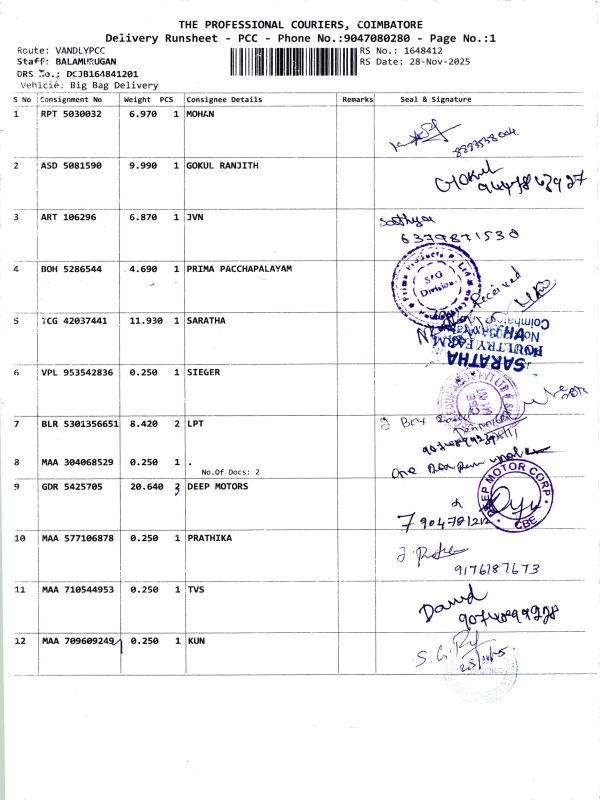 THE PROFESSIONAL COURIERS, COIMBATORE
Delivery Runsheet - PCC - Phone No.:9047080280 - Page No.:1
Route: VANDLYPCC
RS No.: 1648412
Staff: BALAMURUGAN
RS Date: 28-Nov-2025
DRS No.: DCJB164841201
Vehicle: Big Bag Delivery
S No Consignment No Weight PCS Consignee Details Remarks Seal & Signature
1 RPT 5030032 6.970 1 MOHAN
2 ASD 5081590 9.990 1 GOKUL RANJITH
Gokul
3 ART 106296 6.870 1 JVN
Sathya
6379871530
4 BOH 5286544 4.690 1 PRIMA PACCHAPALAYAM
SPG
Division
Received
5 TCG 42037441 11.930 1 SARATHA
SARATHA
POULTRY FARM
Coimbatore
6 VPL 953542836 0.250 1 SIEGER
7 BLR 5301356651 8.420 2 LPT
2 Box
8 MAA 304068529 0.250 1 .
No.Of Docs: 2
One Box
9 GDR 5425705 20.640 3 DEEP MOTORS
DEEP MOTOR CORP
CBE
7904781212
10 MAA 577106878 0.250 1 PRATHIKA
9176187673
11 MAA 710544953 0.250 1 TVS
David
12 MAA 709609249 0.250 1 KUN